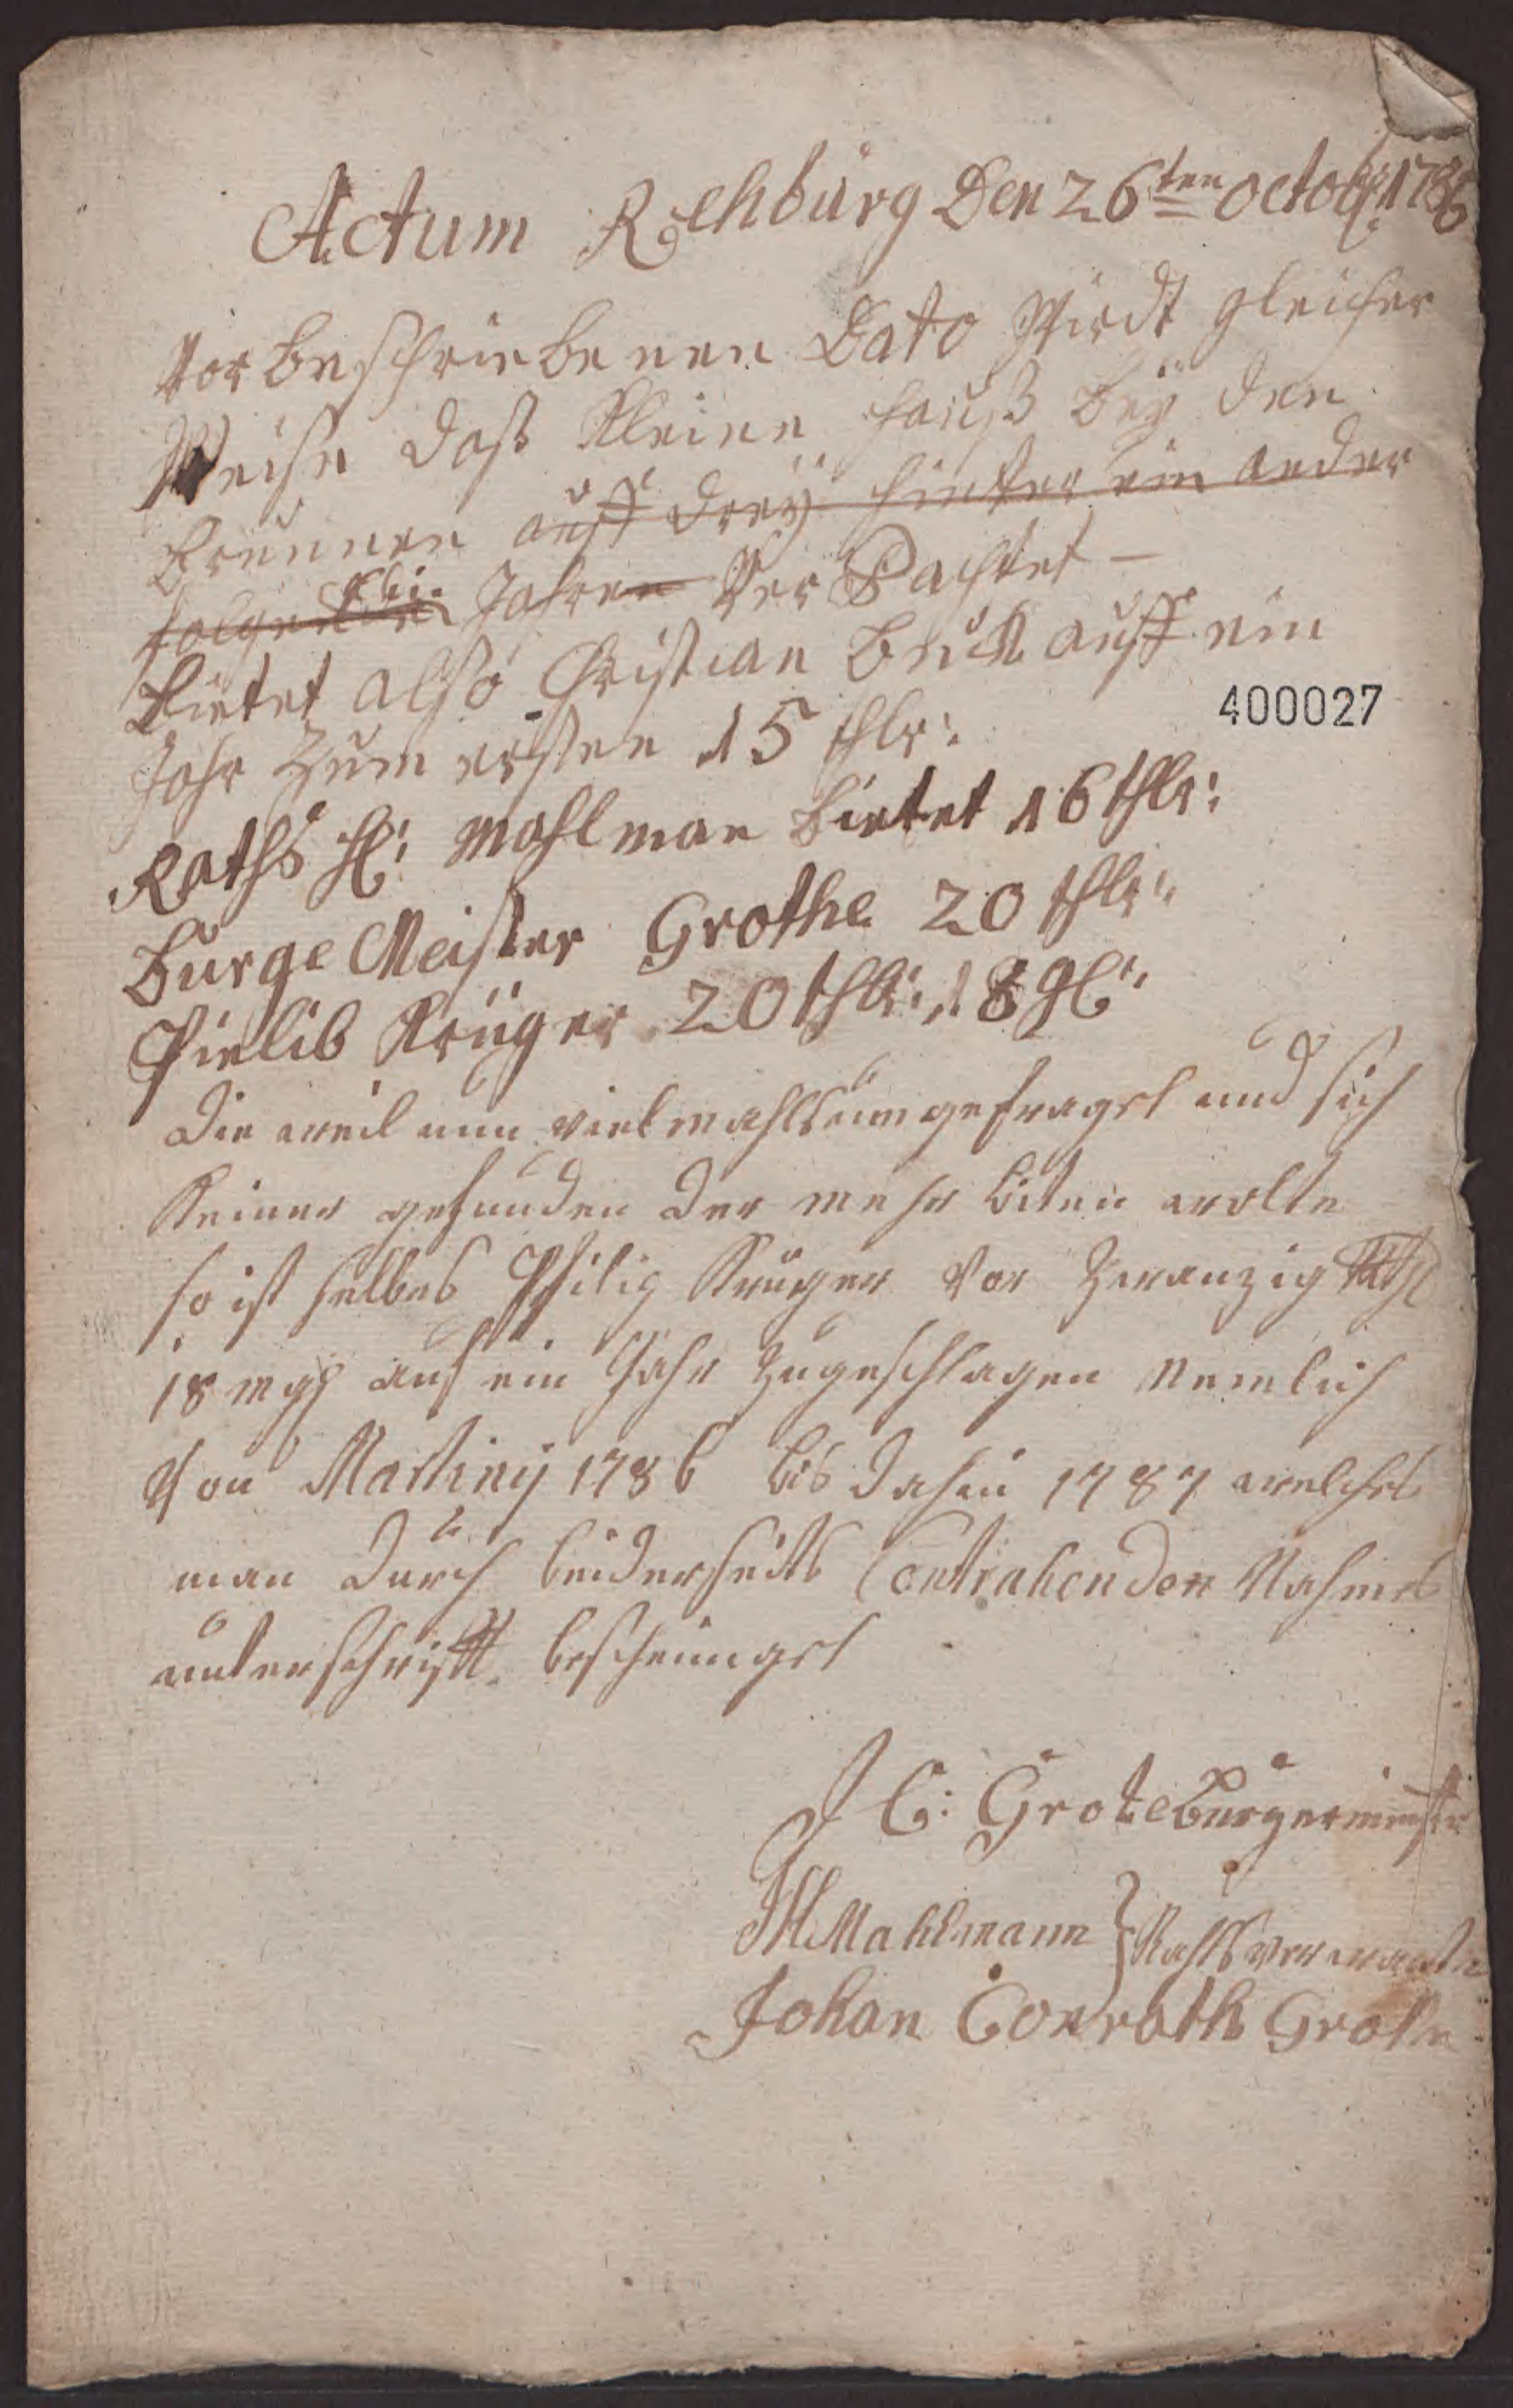 Actum Rehburg Den 26ten Octobr: 1786
Vor Beschriebenen Dato Wirdt gleicher
Weise daß Kleine hauß Bey den
Brunnen auff drey hinter ein ander
folgenden Jahren Ver Pachtet —
Bietet also Christian Bruk auff ein
400027
Jahr Zum ersten 15 thlr:
Raths H: Mahlman Bietet 16 thlr:
Burge Meister Grothe 20 thlr:
Pielib Krüger 20 thlr: 18 gl:
Die weil nun vielmahls umgefraget und sich
Keiner gefunden der mehr biten wolte
so ist selbes Philip Krüger Vor Zwanzig Rthl
18 mgl auf ein Jahr Zugeschlagen Nemlich
Von Martiny 1786 bis dahin 1787 welches
man durch beiderseits Contrahenden Nahmes
unterschrifft bescheinget
J C: Grote Burgermeister
JH Mahlmann } Rahtsverwante
Johan Conrath Grote